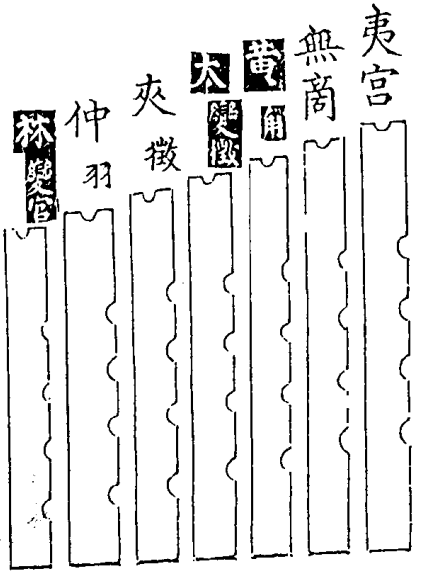 夷宫
無商
黄角
太變徵
夾徵
仲羽
林變宫